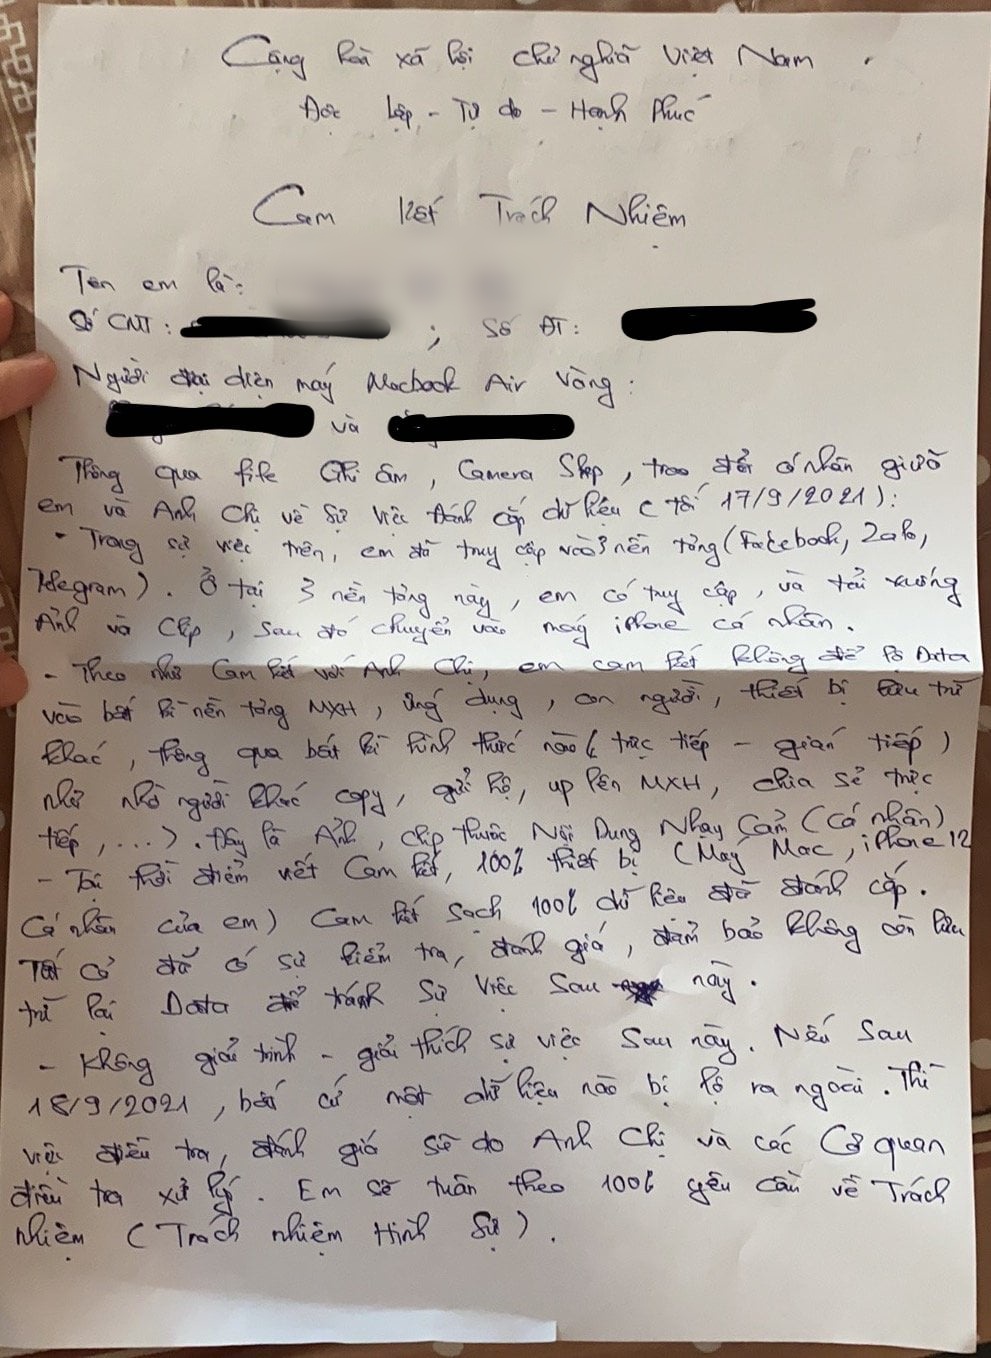 Cộng hoà xã hội chủ nghĩa Việt Nam.
Độc lập - Tự do - Hạnh Phúc
Cam kết Trách Nhiệm
Tên em là:
Số CNT: ; Số ĐT:
Người đại diện máy Macbook Air Vàng:
và
Thông qua file Ghi âm, Camera Shop, trao đổi cá nhân giữa
em và Anh Chị về Sự Việc Đánh cắp dữ liệu (Tối 17/9/2021):
- Trong sự việc trên, em đã truy cập vào 3 nền tảng (Facebook, Zalo,
Telegram). Ở tại 3 nền tảng này, em có truy cập, và tải xuống
Ảnh và Clip, sau đó chuyển vào máy iPhone cá nhân.
- Theo như Cam kết với Anh Chị, em cam kết không để lộ Data
vào bất kì nền tảng MXH, ứng dụng, con người, thiết bị lưu trữ
khác, thông qua bất kì hình thức nào (trực tiếp - gián tiếp)
như nhờ người khác copy, gửi hộ, up lên MXH, chia sẻ trực
tiếp, ...). Đây là Ảnh, clip thuộc Nội Dung Nhạy Cảm (Cá nhân)
- Tại thời điểm viết Cam kết, 100% thiết bị (Máy Mac, iPhone 12
Cá nhân của em) Cam kết sạch 100% dữ liệu đã đánh cắp.
Tất cả đã có sự kiểm tra, đánh giá, đảm bảo không còn lưu
trữ lại Data để tránh sự việc sau này.
- Không giải trình - giải thích sự việc sau này. Nếu Sau
18/9/2021, bất cứ một dữ liệu nào bị lộ ra ngoài. Thì
việc điều tra, đánh giá sẽ do Anh Chị và các Cơ quan
điều tra xử lý. Em sẽ tuân theo 100% yêu cầu về Trách
nhiệm (Trách nhiệm Hình Sự).